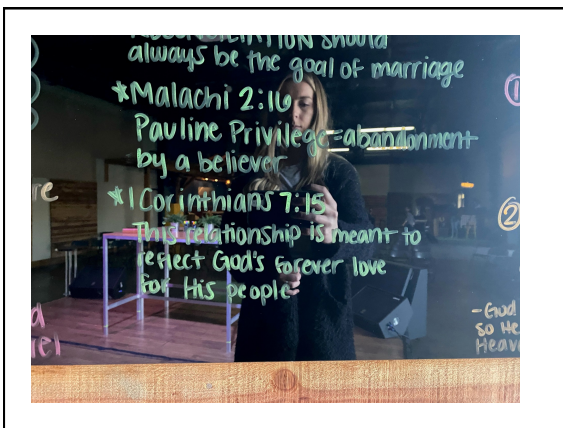 RECONCILIATION should
always be the goal of marriage
*Malachi 2:16
Pauline Privilege=abandonment
by a believer
*1 Corinthians 7:15
This relationship is meant to
reflect God's forever love
for His people
①
②
-God
So He
Heav
re
d
rel